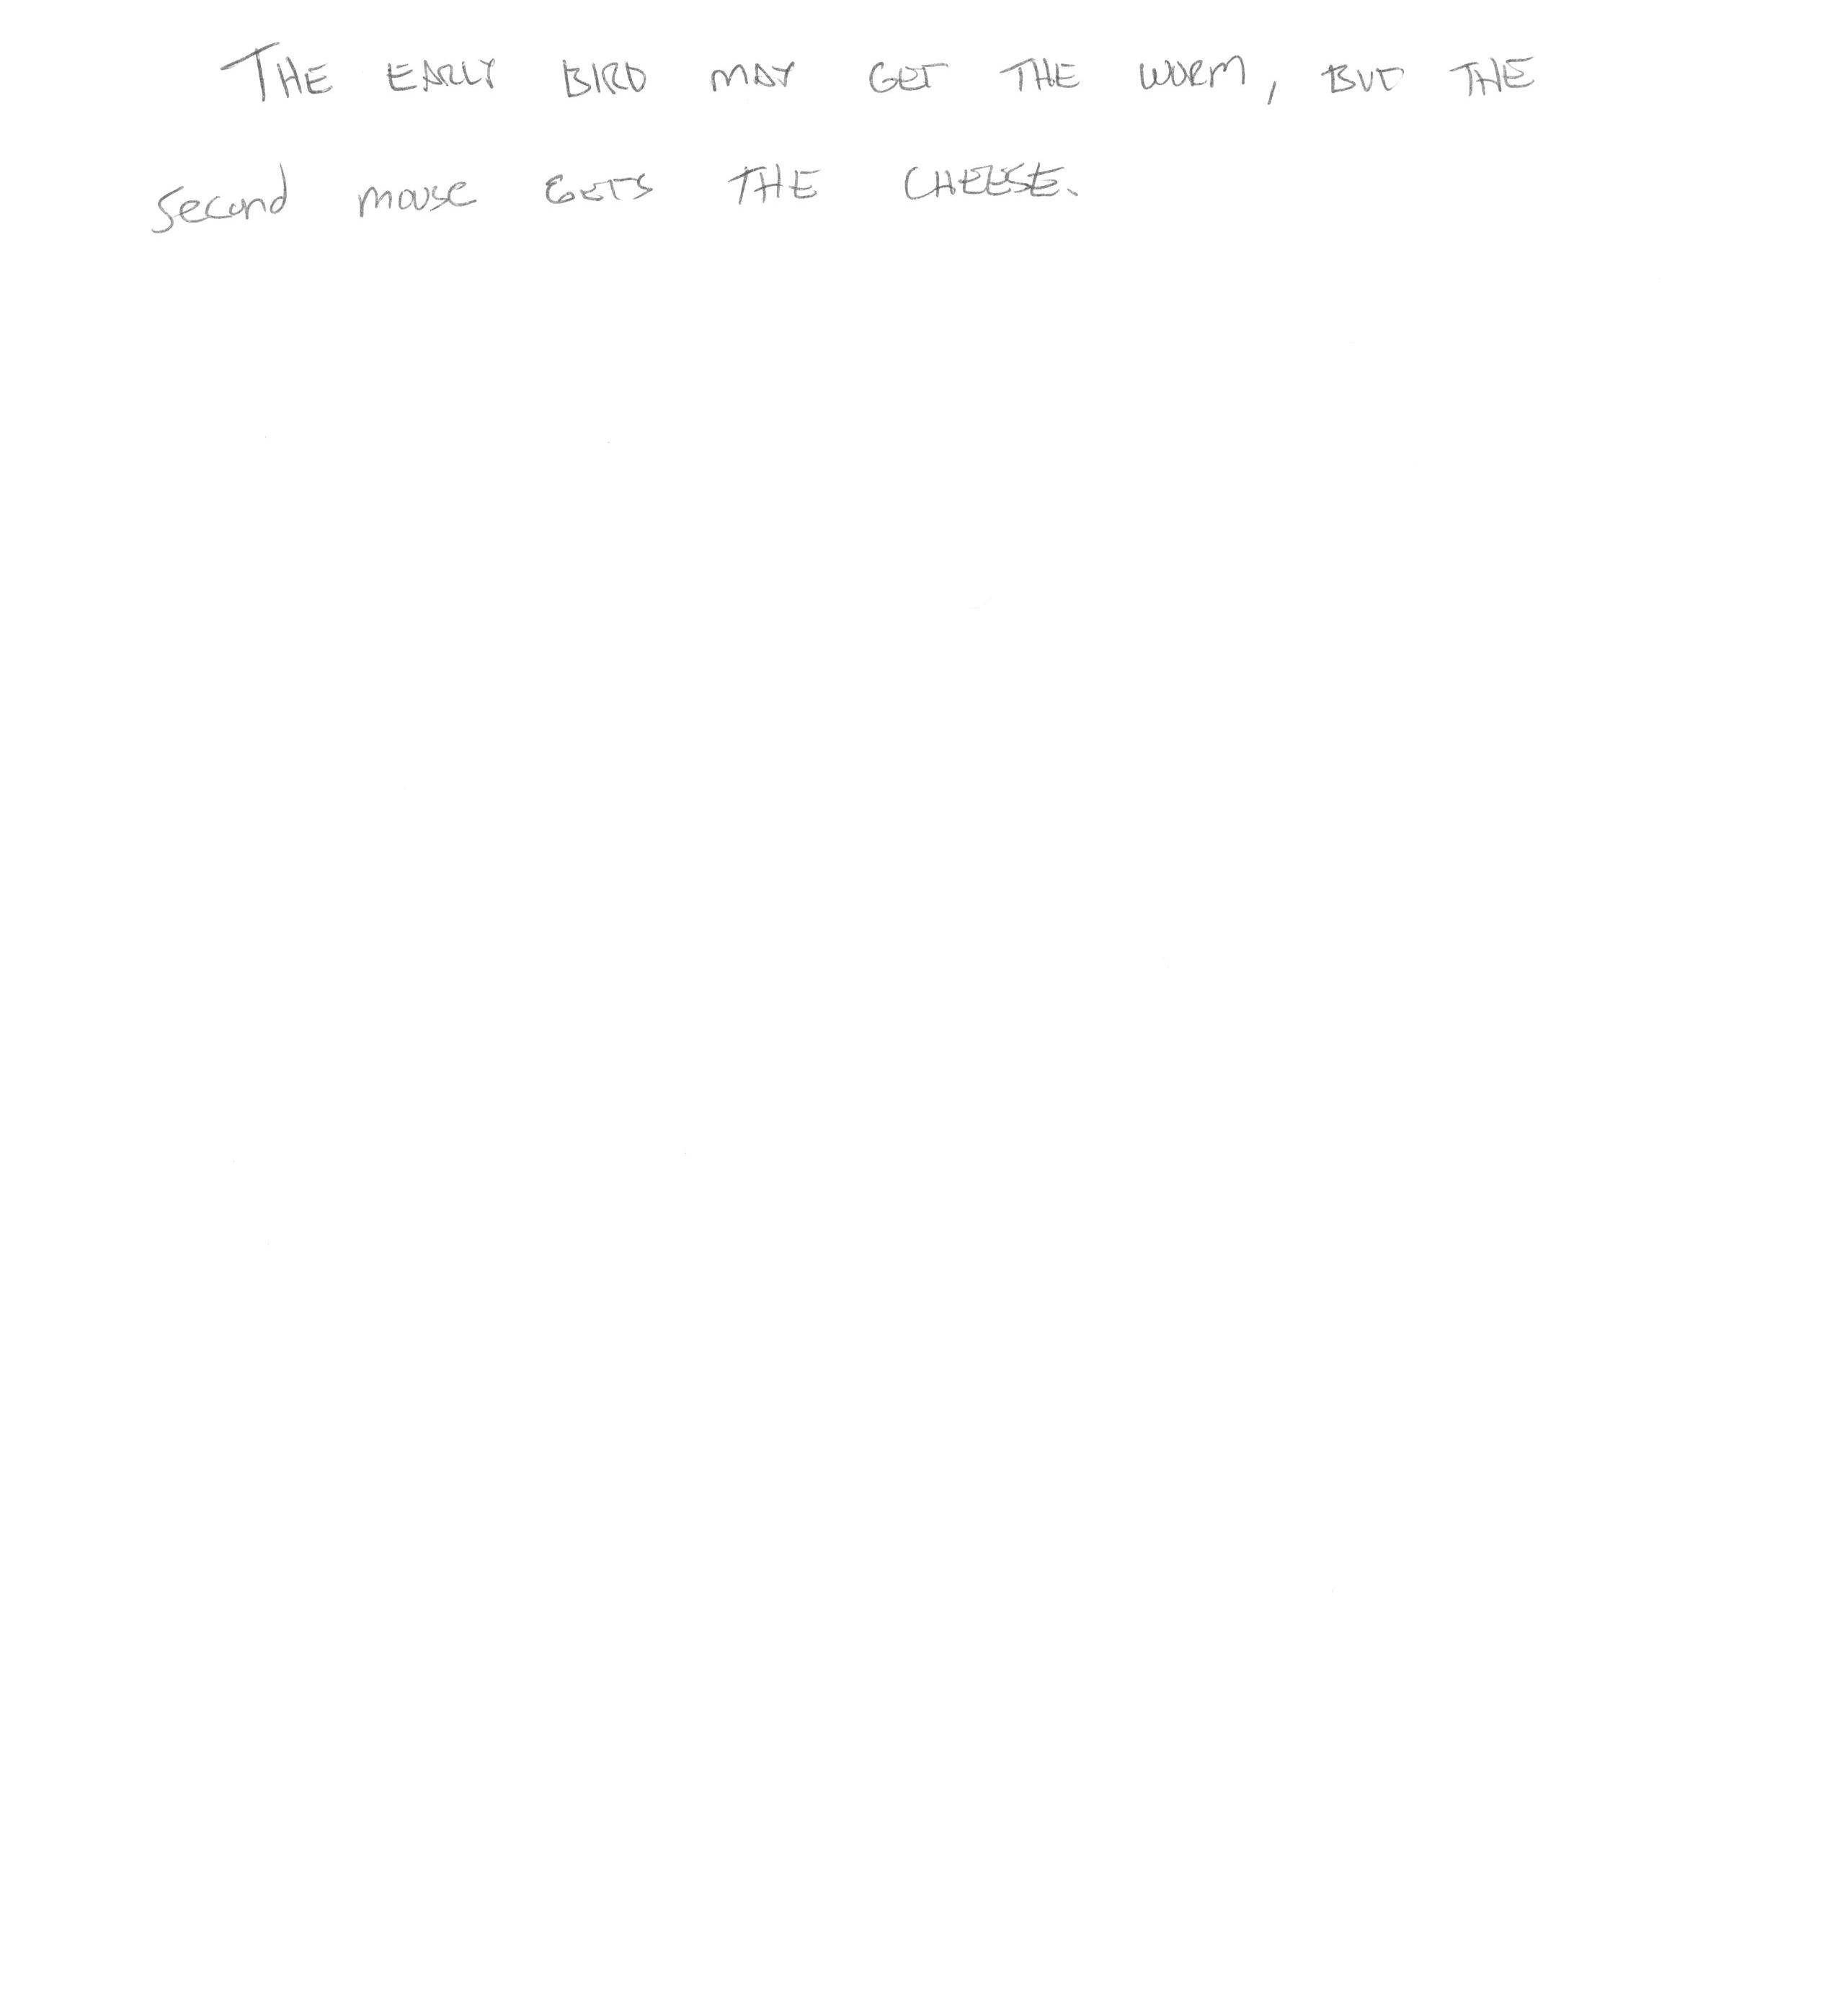 THE EARLY BIRD MAY GET THE WORM, BUT THE
second mouse GETS THE CHEESE.